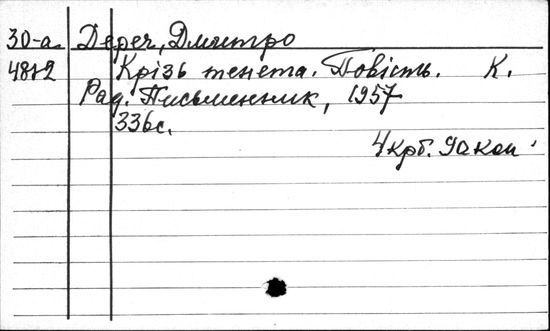 30-а Дереч, Дмитро
4812 Крізь тенета. Повість. К.
Рад. Письменник, 1957
336с.
4крб. 90коп